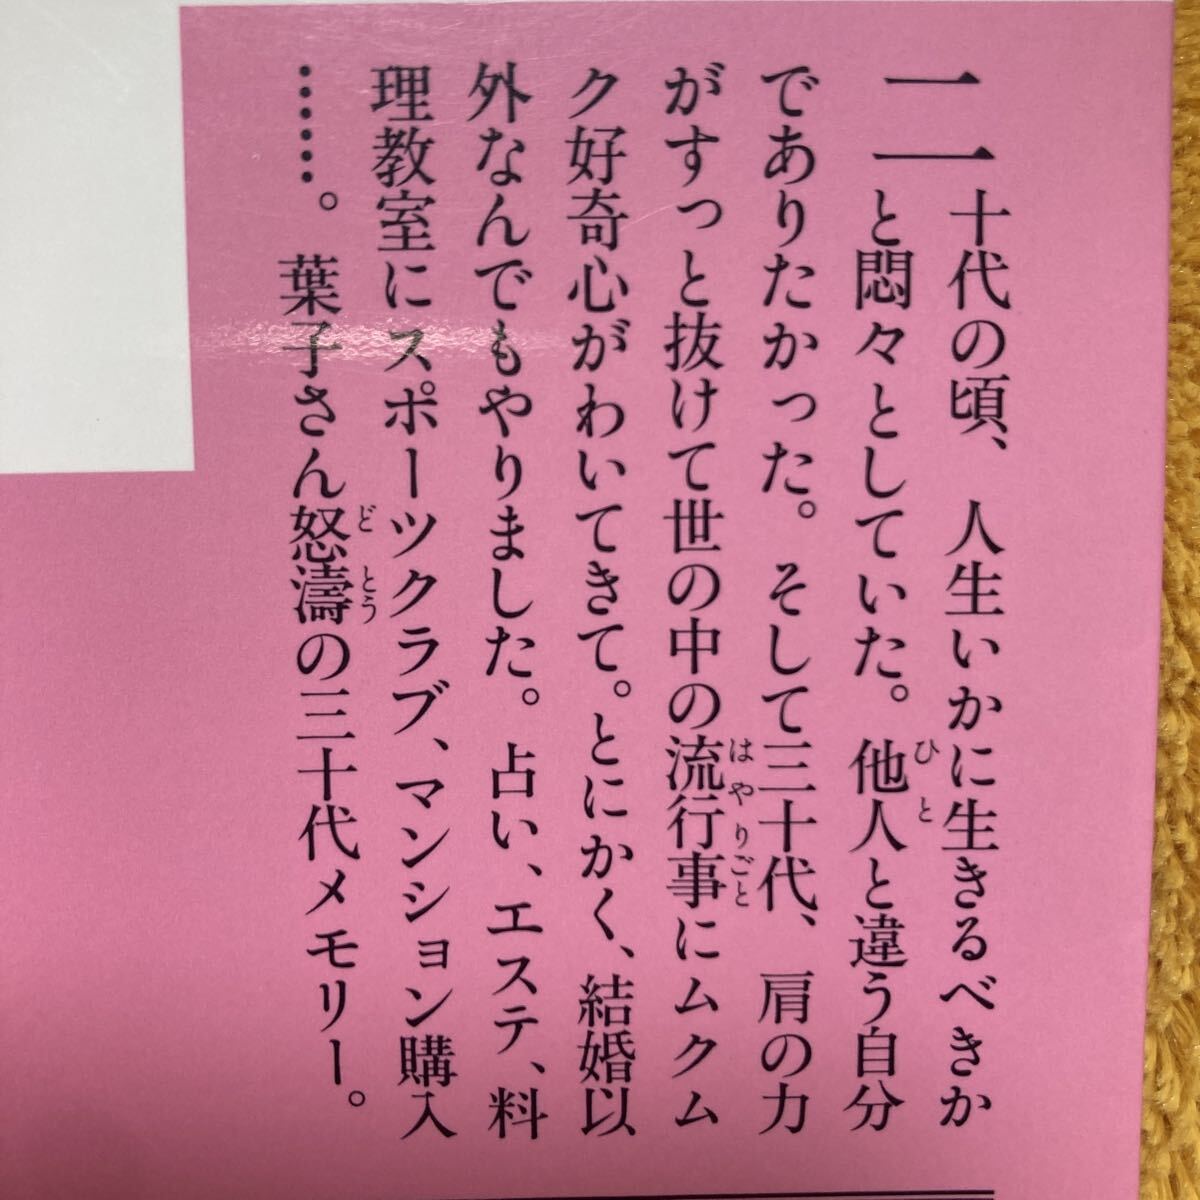 二十代の頃、人生いかに生きるべきか
と悶々としていた。他人と違う自分
でありたかった。そして三十代、肩の力
がすっと抜けて世の中の流行事にムクム
ク好奇心がわいてきて。とにかく、結婚以
外なんでもやりました。占い、エステ、料
理教室にスポーツクラブ、マンション購入
……。葉子さん怒濤の三十代メモリー。
ひと
はやりごと
どとう